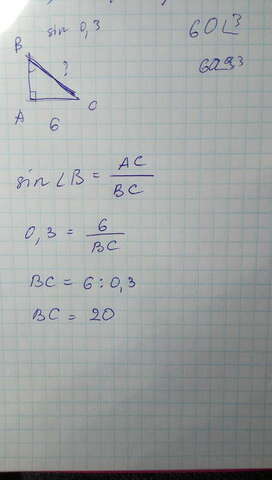 sin 0,3
B
?
A
C
6
60 L3
sin ∠B = AC/BC
0,3 = 6/BC
BC = 6 : 0,3
BC = 20